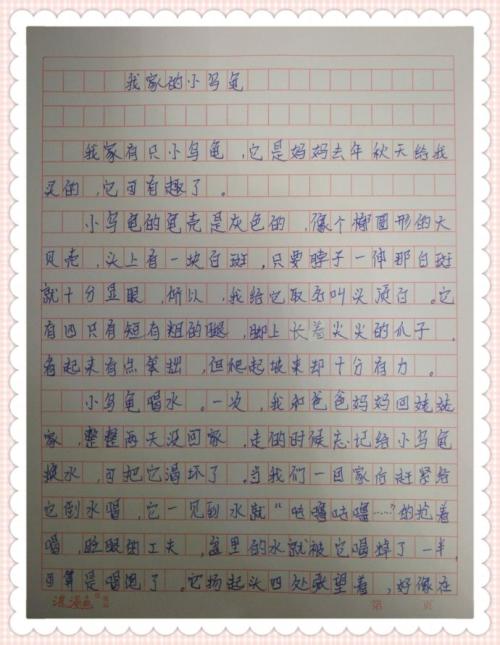 我家的小乌龟
我家有只小乌龟,它是妈妈去年秋天给我
买的,它可有趣了。
小乌龟的龟壳是灰色的,像个椭圆形的大
贝壳,头上有一块白斑,只要脖子一伸那白斑
就十分显眼,所以,我给它取名叫头顶白。它
有四只有短有粗的腿,脚上长着尖尖的爪子,
看起来有点笨拙,但爬起坡来却十分有力。
小乌龟喝水。一次,我和爸爸妈妈回姥姥
家,整整两天没回家,走的时候忘记给小乌龟
换水,可把它渴坏了。当我们一回家后赶紧给
它倒水喝,它一见到水就“咕噜咕噜……”的抢着
喝,眨眼的工夫,盆里的水就被它喝掉了一半
算是喝饱了。它扬起头四处张望着,好像在
第 页